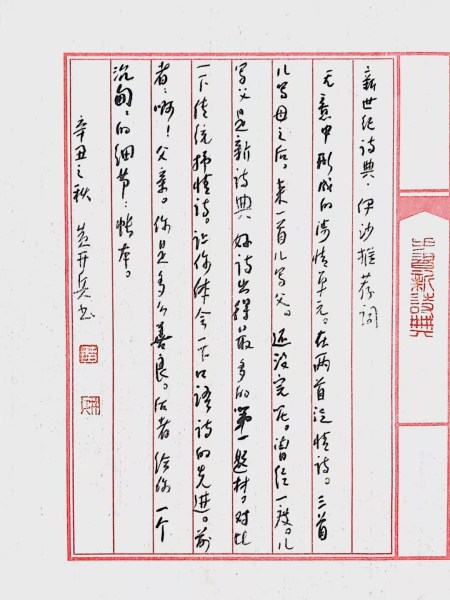 新世纪诗典·伊沙推荐词
无意中形成的情单元。在两首情诗。三首
儿写母之后。来一首儿写父。还没完。曾经一度。儿
写父是新诗典好诗出得最多的第一题材。对比
一下传统抒情诗。让你体会一下口语诗的先进。前
者：啊！父亲。你是多么善良。后者给你一个
沉甸甸的细节：帐本。
辛丑之秋 黄开兵书
新诗典